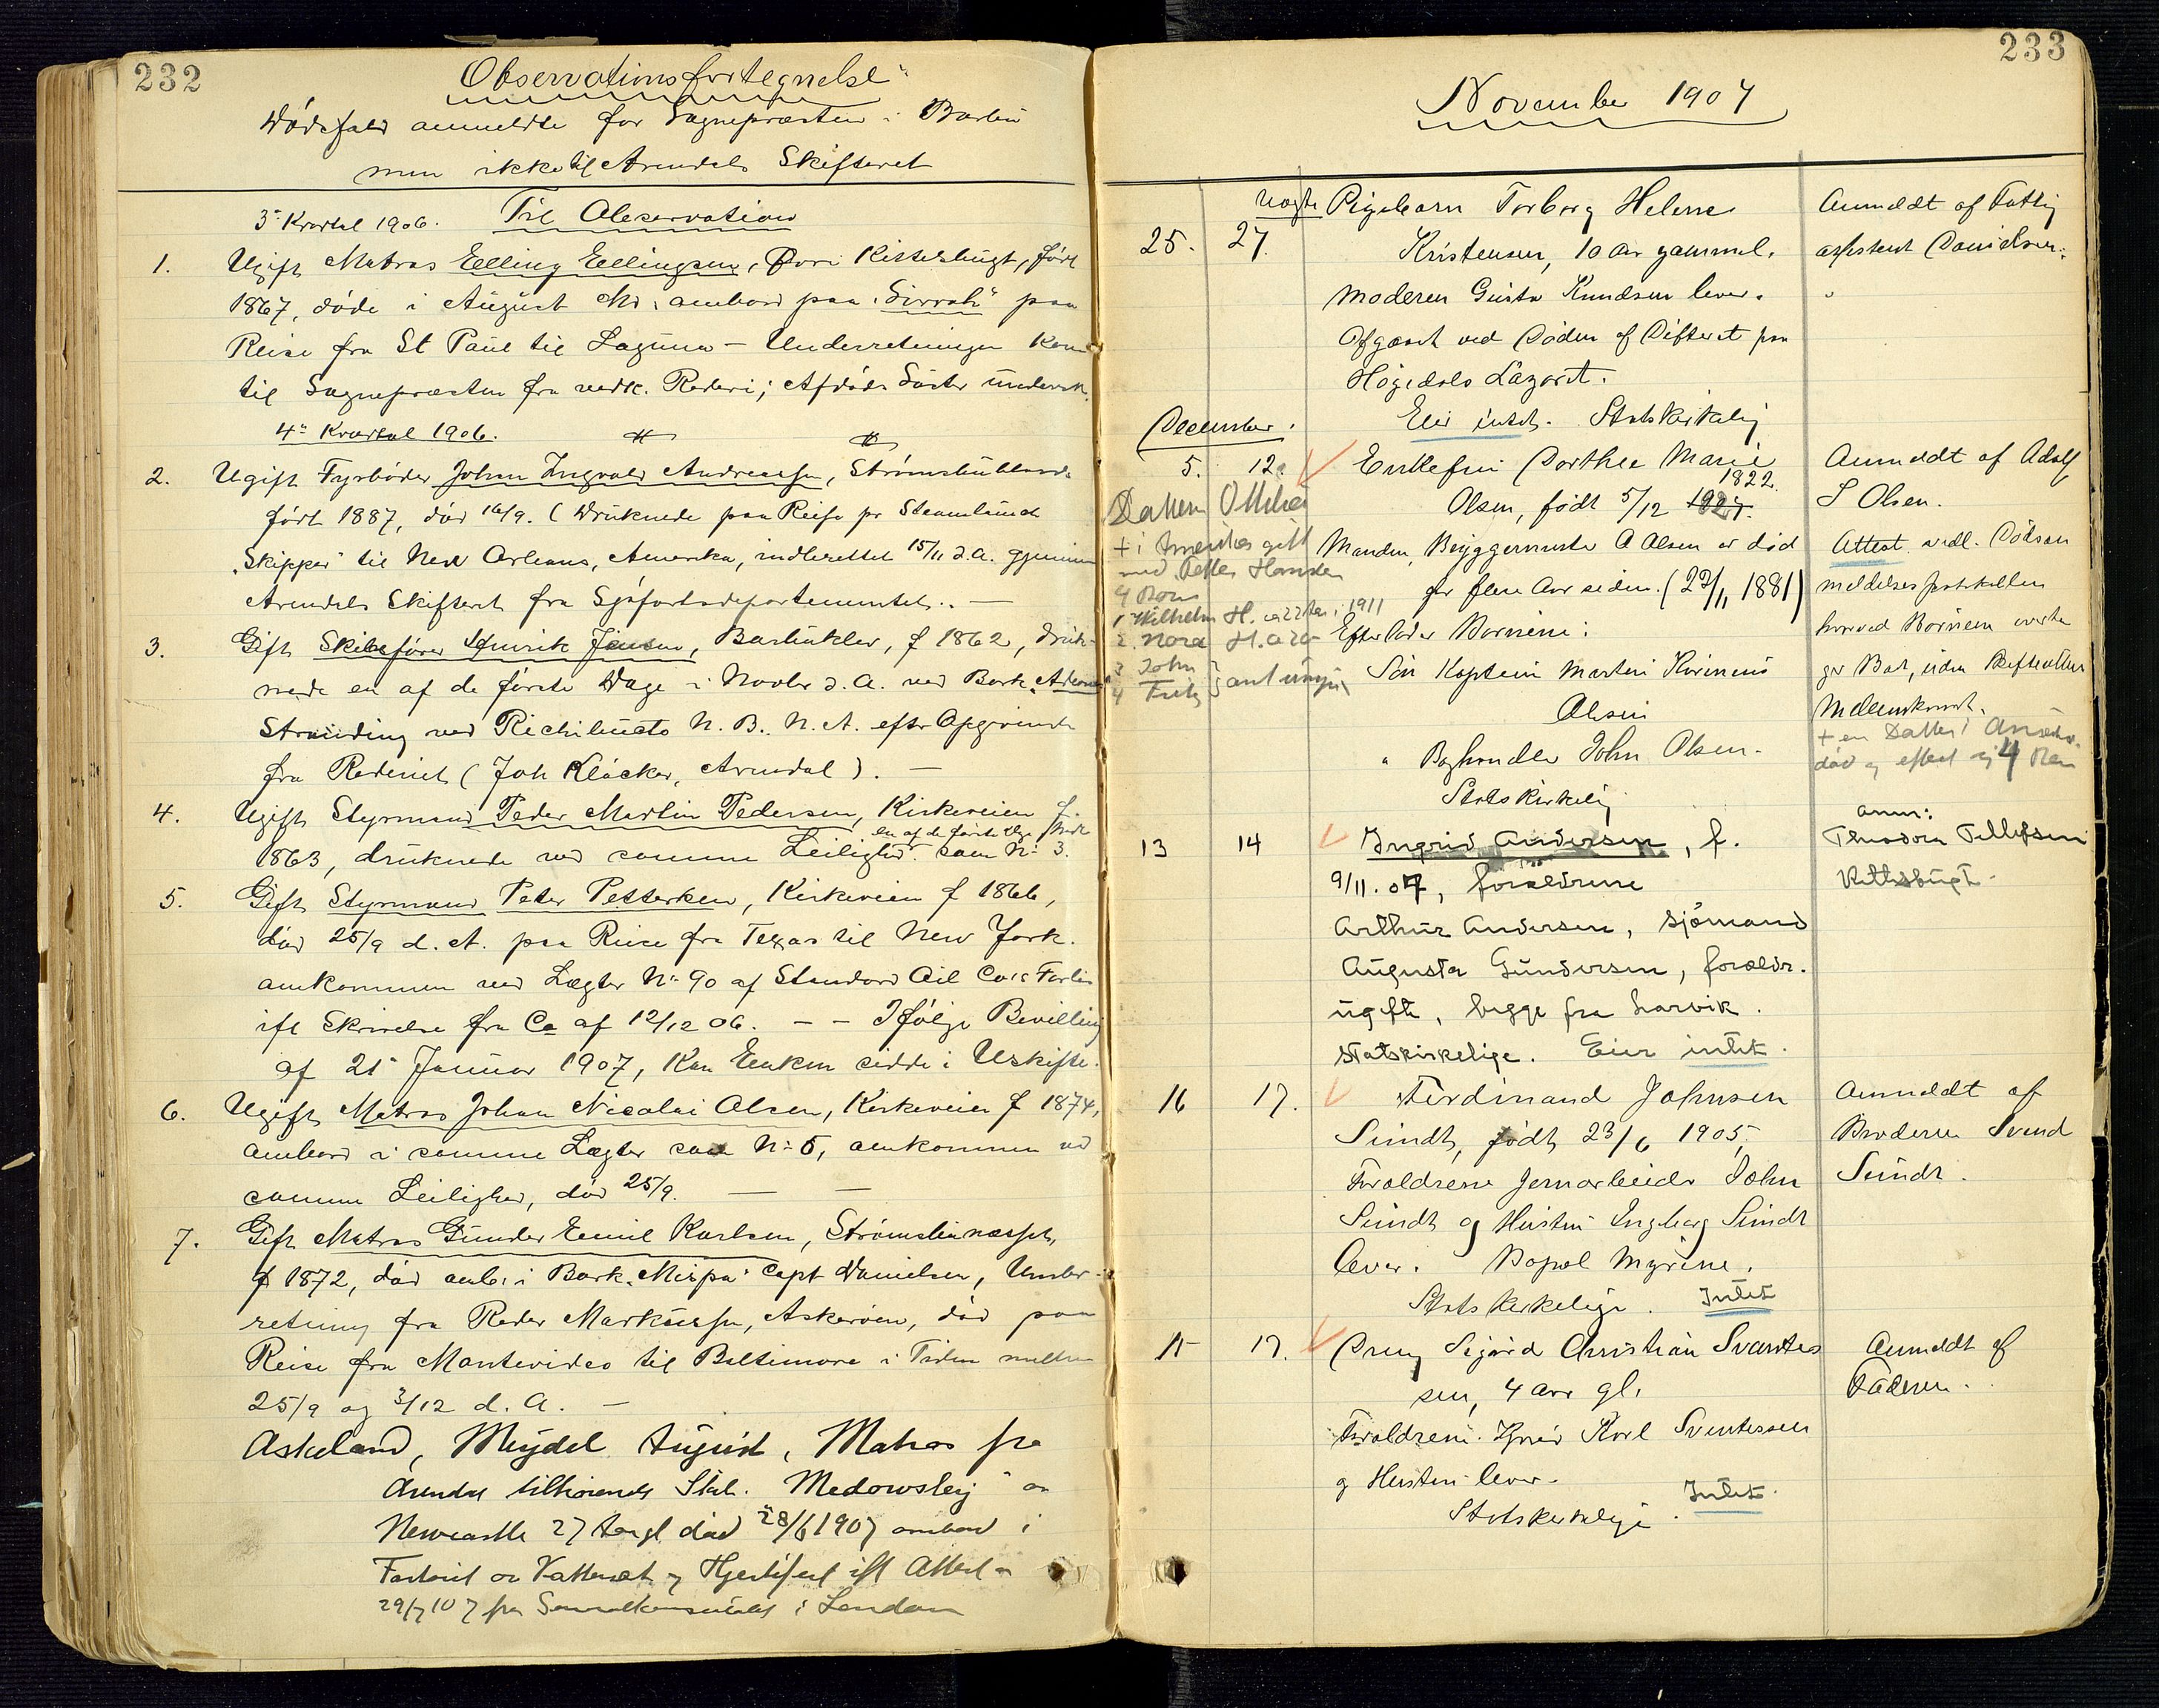 232
Observationsfortegnelse
Dødsfald anmeldte for Sognepræsten i Barbu
men ikke til Arendals Skifteret
3die Kvartal 1906. Til Observation
1. Ugift Matros Elling Ellingsen, Kittelsbugt, født
1867, døde i August Md. ombord paa "Sirrah" paa
Reise fra St Paul til Laguna - Underretningen kom
til Sognepræsten fra vedk. Rederi; Afdødes Søster
4de Kvartal 1906.
2. Ugift Fyrbøder Johan Ingvald Andreassen, Strømsbu
født 1887, død 16/9. (Druknede paa Reise pr Steamlaunch
"Skipper" til New Orleans, Amerika, indberettet 15/11 d.A. gjennem
Arendals Skifteret fra Sjøfartsdepartementet. —
3. Gift Skibsfører Henrik Jensen, Barbu, f 1862, druk-
nede en af de første Dage i Novbr d.A. ved Bark
Stranding ved Richibucto N.B. N.A. efter Opgivende
fra Rederiet (Joh Kløcker, Arendal). —
4. Ugift Styrmand Peder Martin Pedersen, Kirkeveien f.
en af de første
1863, druknede ved samme Leilighed som No 3.
5. Gift Styrmand Peter Pettersen, Kirkeveien f 1866,
død 25/9 d. A. paa Reise fra Texas til New York.
omkommen ved Lægter No 90 af Standard Oil Co's Forlis
ifl Skrivelse fra Co af 12/12 06. — — Ifølge Bevilling
af 21 Januar 1907, kan Enken sidde i Uskifte.
6. Ugift Matros Johan Nicolai Olsen, Kirkeveien f 1874,
ombord i samme Lægter som No 5, omkommen ved
samme Leilighed, død 25/9. — —
7. Gift Matros Gunder Emil Karlsen, Strømsbunæsset,
f 1872, død omb. i Bark "Mizpa" Capt Danielsen, Under-
retning fra Reder Markussen, Askerøen, død paa
Reise fra Montevideo til Baltimore i Tiden mellem
25/9 og 3/12 d. A. —
Askeland, Meydel August, Matros fra
Arendal tilhørende Skib. "Medowsley" av
Newcastle 27 Aar gl død 28/6 1907 ombord i
og Hjertefeil ifl Attest
29/7 107 fra Generalkonsulatet i London
233
November 1907
25. 27. Pigebarn Torborg Helene
Kristensen, 10 Aar gammel.
Moderen Gusta Knudsen lever.
Afgaaet ved Døden af Difterit paa
Høgedals Lazaret.
Eier intet. Statskirkelig
Anmeldt af Fattig
assistent Danielsen.
December.
5. 12. Enkefru Dorthea Marie
Olsen, født 5/12 1822
Manden, Bryggermester A Olsen er død
for flere Aar siden. (22/11 1881)
Efterlader Børnene:
Søn Kaptein Martin Olsen
" Boghandler John Olsen.
Statskirkelig
Anmeldt af Adolf
S Olsen.
Attest vedl. Dødsan
meldelsesprotokollen
hvorved Børnene
Mellemkomst.
+ en Datter i Amerika
død og efterl. sig 4 Børn
Datter Ottilia
+ i Amerika gift
med Peter Hansen
4 Børn
1 Wilhelm H. 1911
2. Nora H.
3 John
4 Fritz
13 14 Ingrid Andersen, f.
9/11.07, forældrene
Arthur Andersen, sjømand
Augusta Gundersen, forældr.
ugifte, begge fra Larvik.
statskirkelige. Eier intet.
anm:
Theodora Tellefsen
Kittelsbugt.
16 17. Ferdinand Johnsen
Sundt, født 23/6 1905,
Forældrene Jernarbeider John
Sundt og Hustru Ingborg Sundt
lever. Bopæl Myrene.
Statskirkelige. Intet
Anmeldt af
Broderen Svend
Sundt.
15 17. Dreng Sigurd Christian Svantes
sen, 4 Aar gl.
Forældrene Karl Svantessen
og Hustru lever.
Statskirkelige. Intet.
Anmeldt af
Faderen.